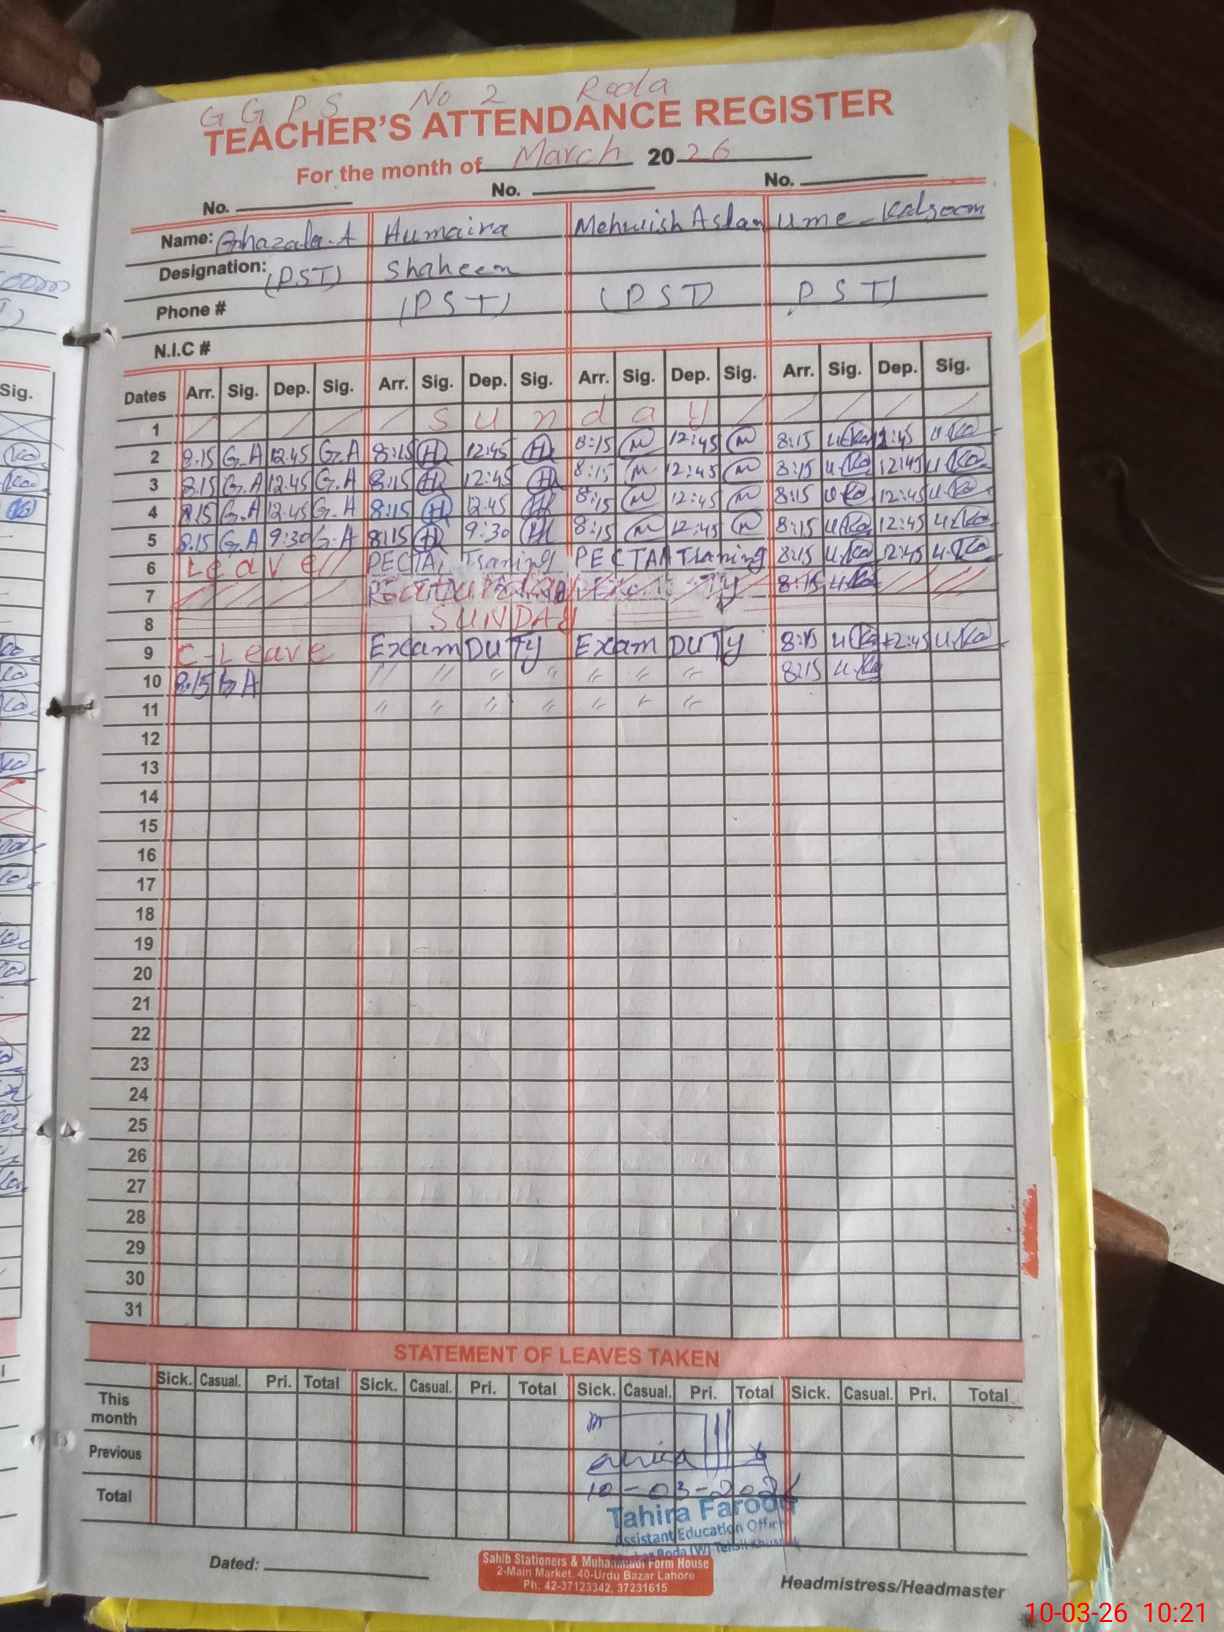 G G P S No 2 Roda
TEACHER'S ATTENDANCE REGISTER
For the month of March 2026
No. No. No.
Name: Ghazala.A Humaira Mehwish Aslam Ume-Kalsoom
Designation: (PST) Shaheen
Phone # (PST) (PST) PST)
N.I.C #
Dates Arr. Sig. Dep. Sig. Arr. Sig. Dep. Sig. Arr. Sig. Dep. Sig. Arr. Sig. Dep. Sig.
1 Sunday
2 8:15 G.A 12:45 G.A 8:15 H 12:45 H 8:15 M 12:45 M 8:15 U.Ka 12:45 U.Ka
3 8.15 G.A 12.45 G.A 8:15 H 12:45 H 8:15 M 12:45 M 8:15 U.Ka 12:45 U.Ka
4 8.15 G.A 12.45 G.A 8:15 H 12:45 H 8:15 M 12:45 M 8:15 U.Ka 12:45 U.Ka
5 8.15 G.A 9:30 G.A 8:15 H 9:30 H 8:15 M 12:45 M 8:15 U.Ka 12:45 U.Ka
6 Leave PECTA Traning PECTAA Traning 8:15 U.Ka 12:45 U.Ka
7 8:15 U.Ka
8 SUNDAY
9 C-Leave Exam DUTY Exam DUTY 8:15 U.Ka 12:45 U.Ka
10 8.15 G A " " " " " " " 8:15 U.Ka
11 " " " " " " "
12
13
14
15
16
17
18
19
20
21
22
23
24
25
26
27
28
29
30
31
STATEMENT OF LEAVES TAKEN
Sick. Casual. Pri. Total Sick. Casual. Pri. Total Sick. Casual. Pri. Total Sick. Casual. Pri. Total
This month
Previous
Total
10-03-2026
Tahira Farooq
Assistant Education Officer
Roda (W)
Dated:
Sahib Stationers & Muhammadi Form House
2-Main Market, 40-Urdu Bazar Lahore
Ph: 42-37123342, 37231615
Headmistress/Headmaster
10-03-26 10:21